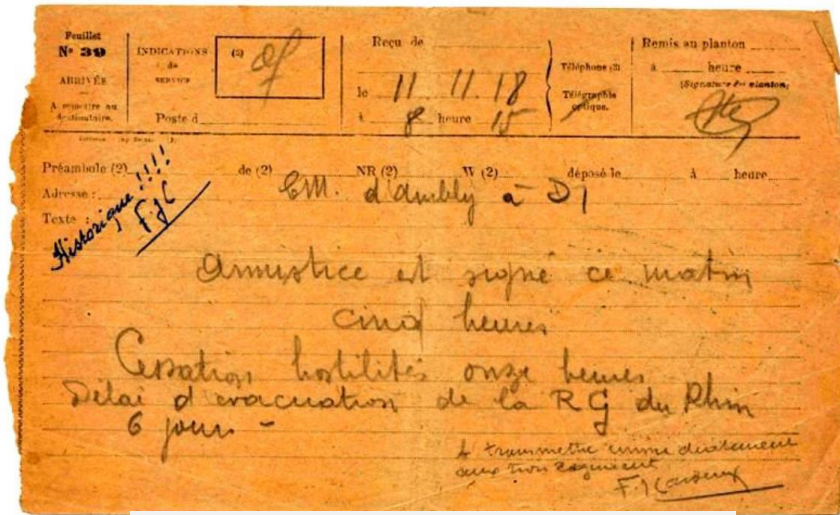 Feuillet
N° 39
ARRIVÉE
A remettre au
destinataire.
INDICATIONS
de
SERVICE
(2)
Poste d
Reçu de
le 11 11 18
à 8 heure 15
Téléphone (2)
Télégraphie
optique.
Remis au planton
à heure
(Signature du planton)
Préambule (2) de (2) NR (2) W (2) déposé le à heure
Adresse : EM. d'Ambly à DI
Texte :
Historique !!!!
FJC
Armistice est signé ce matin
cinq heures
Cessation hostilités onze heures
Délai d'évacuation de la RG du Rhin
6 jours -
A transmettre immédiatement
aux trois régiments